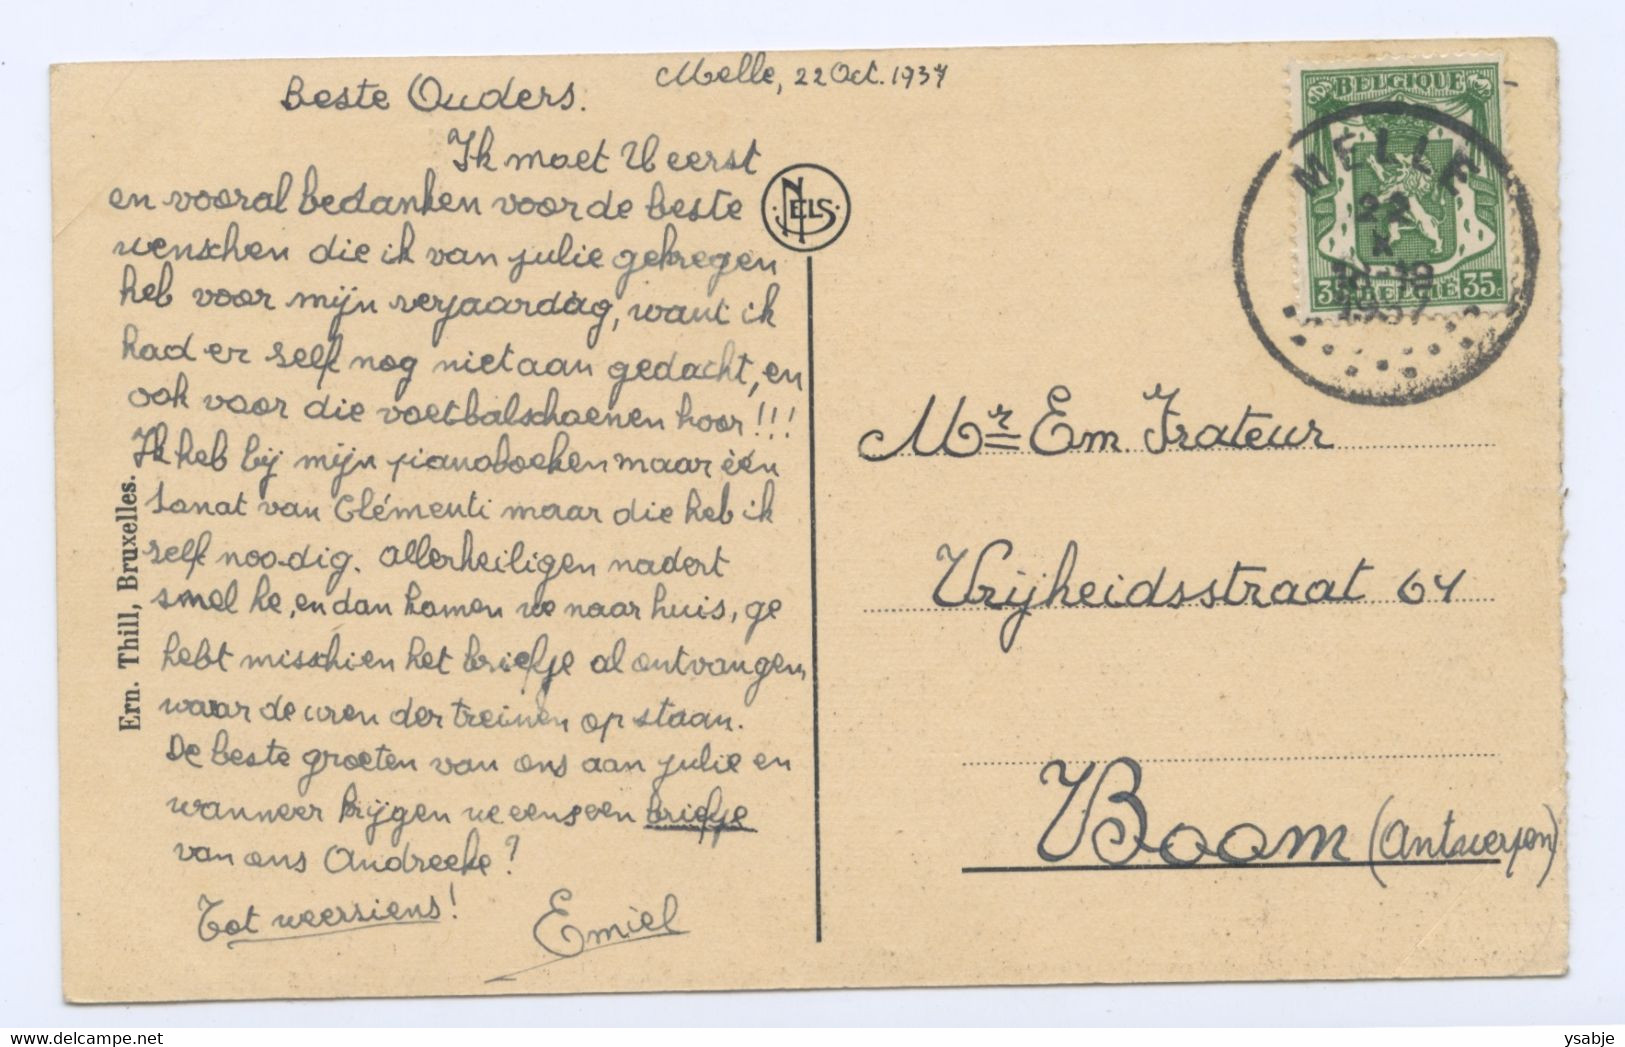 Melle, 22 Oct. 1937
Beste Ouders.
Ik moet U eerst
en vooral bedanken voor de beste
wenschen die ik van julie gekregen
heb voor mijn verjaardag, want ik
had er self nog niet aan gedacht, en
ook voor die voetbalschoenen hoor!!!
Ik heb bij mijn pianoboeken maar één
sonat van Clémenti maar die heb ik
self noodig. Allerheiligen nadert
snel he, en dan komen we naar huis, ge
hebt misschien het briefje al ontvangen,
waar de uren der treinen op staan.
De beste groeten van ons aan julie en
wanneer krijgen we eens een briefje
van ons Andreeke?
Tot weersiens!
Emiel
NELS
Ern. Thill, Bruxelles.
BELGIQUE
35c BELGIE 35c
MELLE
22
X
1937
Mr Em. Frateur
Vrijheidsstraat 64
Boom (Antwerpen)
ysabje